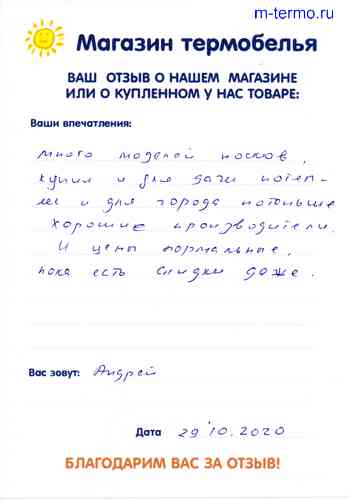 m-termo.ru
Магазин термобелья
ВАШ ОТЗЫВ О НАШЕМ МАГАЗИНЕ
ИЛИ О КУПЛЕННОМ У НАС ТОВАРЕ:
Ваши впечатления:
много моделей носков,
купил и для дачи потеп-
лее и для города потоньше
хорошие производители.
И цены нормальные,
пока есть скидки даже.
Вас зовут: Андрей
Дата 29 10. 2020
БЛАГОДАРИМ ВАС ЗА ОТЗЫВ!